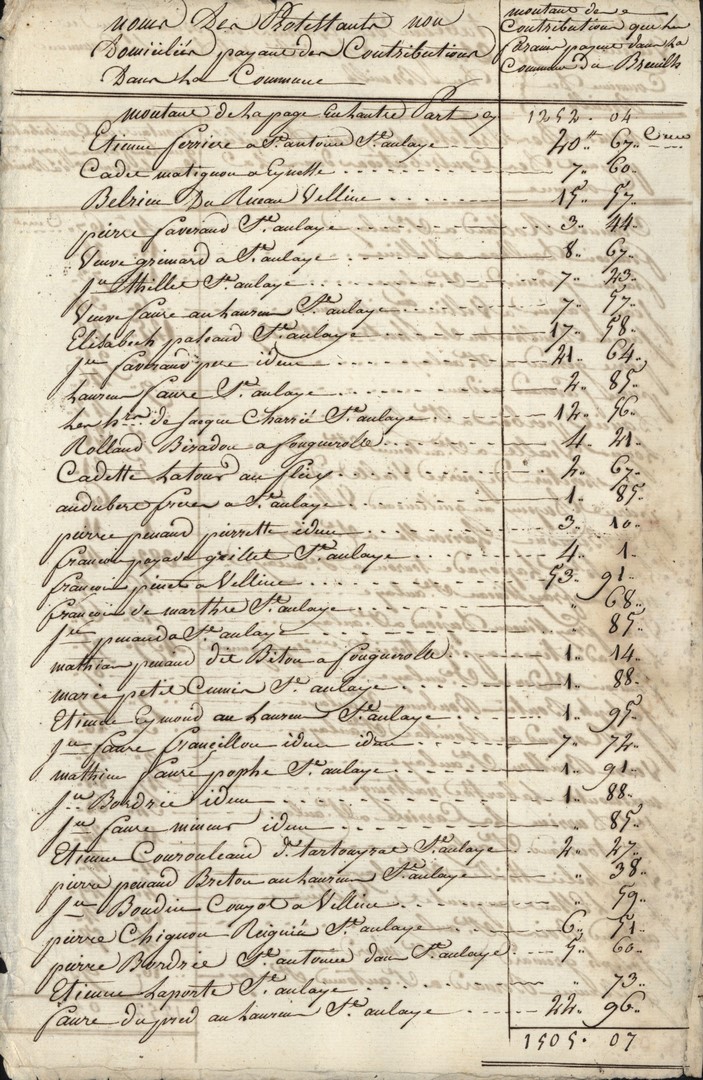 noms Des Protestants non
Domiciliés payant des Contributions
Dans La Commune
montant des
Contributions que les
forains payent dans La
Commune Du Breuilh
montant de la page En hautre Part 1252. 04
Etienne ferriere a St. antoine Ste. aulaye 20 tt 67
Cadet matignon a Eynesse 7 60
Belrieu Du Rureau Velline 15 57
pierre faveraud Ste. aulaye 3 44
Veuve grenard a Ste. aulaye 8 67
Jn. thillet Ste. aulaye 7 23
Veuve faure au haureu Ste. aulaye 7 57
Elisabeth paleaud Ste. aulaye 17 58
Jn. faveraud pere idem 21 64
Laurent faure Ste. aulaye 2 85
Les hrs. de Jacque Charrié Ste. aulaye 12 56
Rolland Biradou a fougueirolle 4 21
Cadette Latour au fleix 2 67
audubert freres a Ste. aulaye 1 85
pierre penaud pierrette idem 3 10
francois pazada geillet Ste. aulaye 4 1
francois pinet a Velline 53 91
francois de marthre Ste. aulaye " 68
Jn. penaud a Ste. aulaye " 85
mathieu penaud dit Biton a fougueirolle 1 14
marie petit Cunier Ste. aulaye 1 88
Etienne Eymond au Laureu Ste. aulaye 1 95
Jn. faure francillou idem idem 7 72
mathieu faure pophe Ste. aulaye 1 91
Jn. Bordrie idem 1 88
Jn. faure mineur idem 85
Etienne Courouleaud d. tartouyrac Ste. aulaye 2 27
pierre penaud Breton au haureu Ste. aulaye " 38
Jn. Boudin Couyot a Velline " 59
pierre Chignou Reignier Ste. aulaye 6 51
pierre Bordrie St. antoine dans Ste. aulaye 5 60
Etienne Laporte Ste. aulaye " 73
faure du pred au Laureu Ste. aulaye 22 96
1505. 07